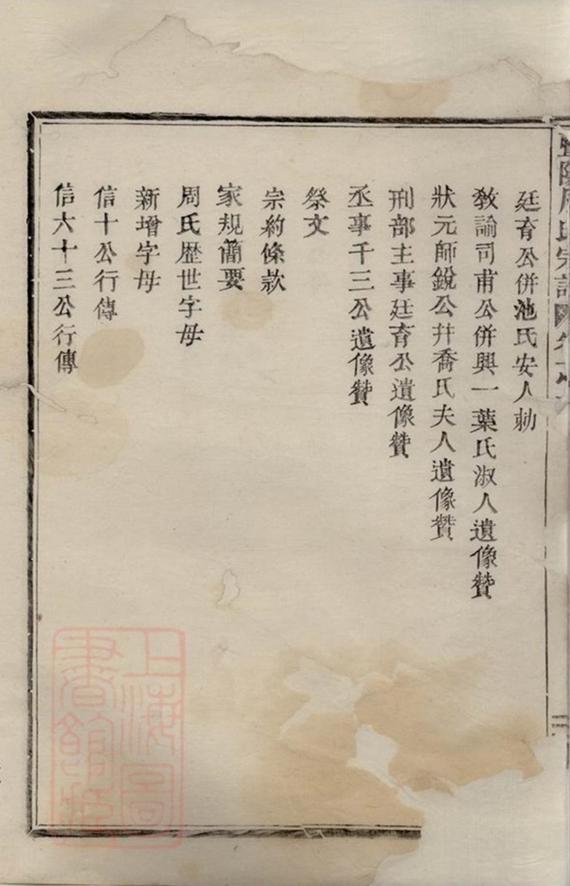 廷育公併池氏安人勅
教諭司甫公併興一葉氏淑人遺像贊
狀元師銳公幷喬氏夫人遺像贊
刑部主事廷育公遺像贊
丞事千三公遺像贊
祭文
宗約條款
家規簡要
周氏歴世字母
新增字母
信十公行傳
信六十三公行傳
上海圖
書館藏